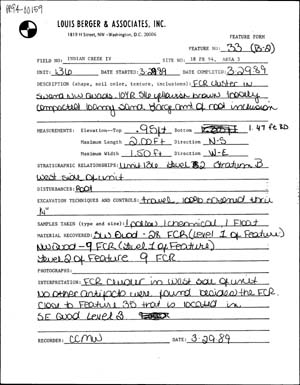 PR94-00159
LOUIS BERGER & ASSOCIATES, INC.
1819 H Street, NW · Washington, D.C. 20006
FEATURE FORM
FEATURE NO. 33 (B-2)
FIELD NO. INDIAN CREEK IV SITE NO. 18 PR 94, AREA 3
UNIT: 136 DATE STARTED: 3.29.89 DATE COMPLETED: 3.29.89
DESCRIPTION (shape, soil color, texture, inclusions): FCR cluster in
SW and NW Quads. 10YR 5/6 yellowish brown loosely
compacted loamy sand. Large amt of root inclusion
MEASUREMENTS: Elevation--Top .95ft Bottom 1.47 ft BD
Maximum Length 2.00ft Direction N-S
Maximum Width 1.50ft Direction W-E
STRATIGRAPHIC RELATIONSHIPS: Unit 136 Level 2 Stratum B
West side of unit
DISTURBANCES: Root
EXCAVATION TECHNIQUES AND CONTROLS: trowel, 100% screened thru
1/4"
SAMPLES TAKEN (type and size): 1 pollen 1 chemical, 1 Float
MATERIAL RECOVERED: SW Quad - 28 FCR (Level 1 of Feature)
NW Quad - 9 FCR (Level 1 of Feature)
Level 2 of Feature 9 FCR
PHOTOGRAPHS:
INTERPRETATION: FCR Cluster in West side of unit
No other artifacts were found besides the FCR.
Close to Feature 35 that is located in
SE Quad Level 3.
RECORDER: CCMW DATE: 3.29.89